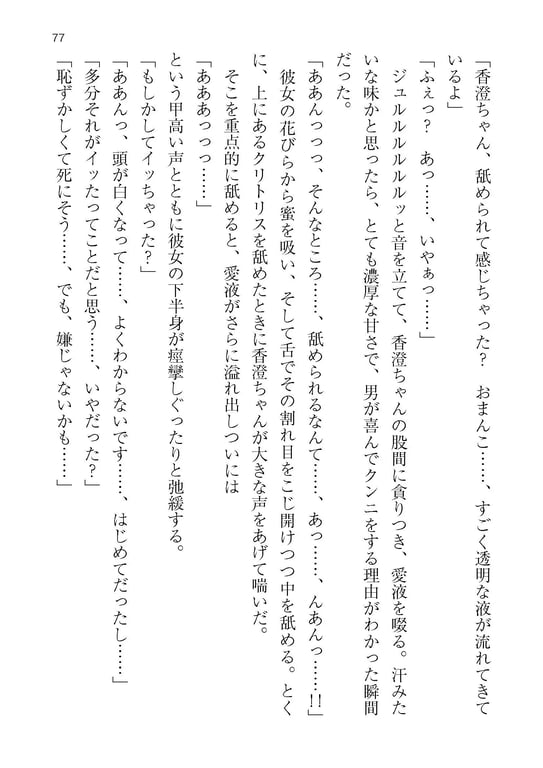 77
「香澄ちゃん、舐められて感じちゃった？　おまんこ……、すごく透明な液が流れてきて
いるよ」
「ふぇっ？　あっ……、いやぁっ……」
　ジュルルルルルルッと音を立てて、香澄ちゃんの股間に貪りつき、愛液を啜る。汗みた
いな味かと思ったら、とても濃厚な甘さで、男が喜んでクンニをする理由がわかった瞬間
だった。
「ああんっっっ、そんなところ……、舐められるなんて……、あっ……、んあんっ……!!」
　彼女の花びらから蜜を吸い、そして舌でその割れ目をこじ開けつつ中を舐める。とく
に、上にあるクリトリスを舐めたときに香澄ちゃんが大きな声をあげて喘いだ。
　そこを重点的に舐めると、愛液がさらに溢れ出しついには
「あああっっっ……」
という甲高い声とともに彼女の下半身が痙攣しぐったりと弛緩する。
「もしかしてイッちゃった？」
「ああんっ、頭が白くなって……、よくわからないです……、はじめてだったし……」
「多分それがイッたってことだと思う……、いやだった？」
「恥ずかしくて死にそう……、でも、嫌じゃないかも……」